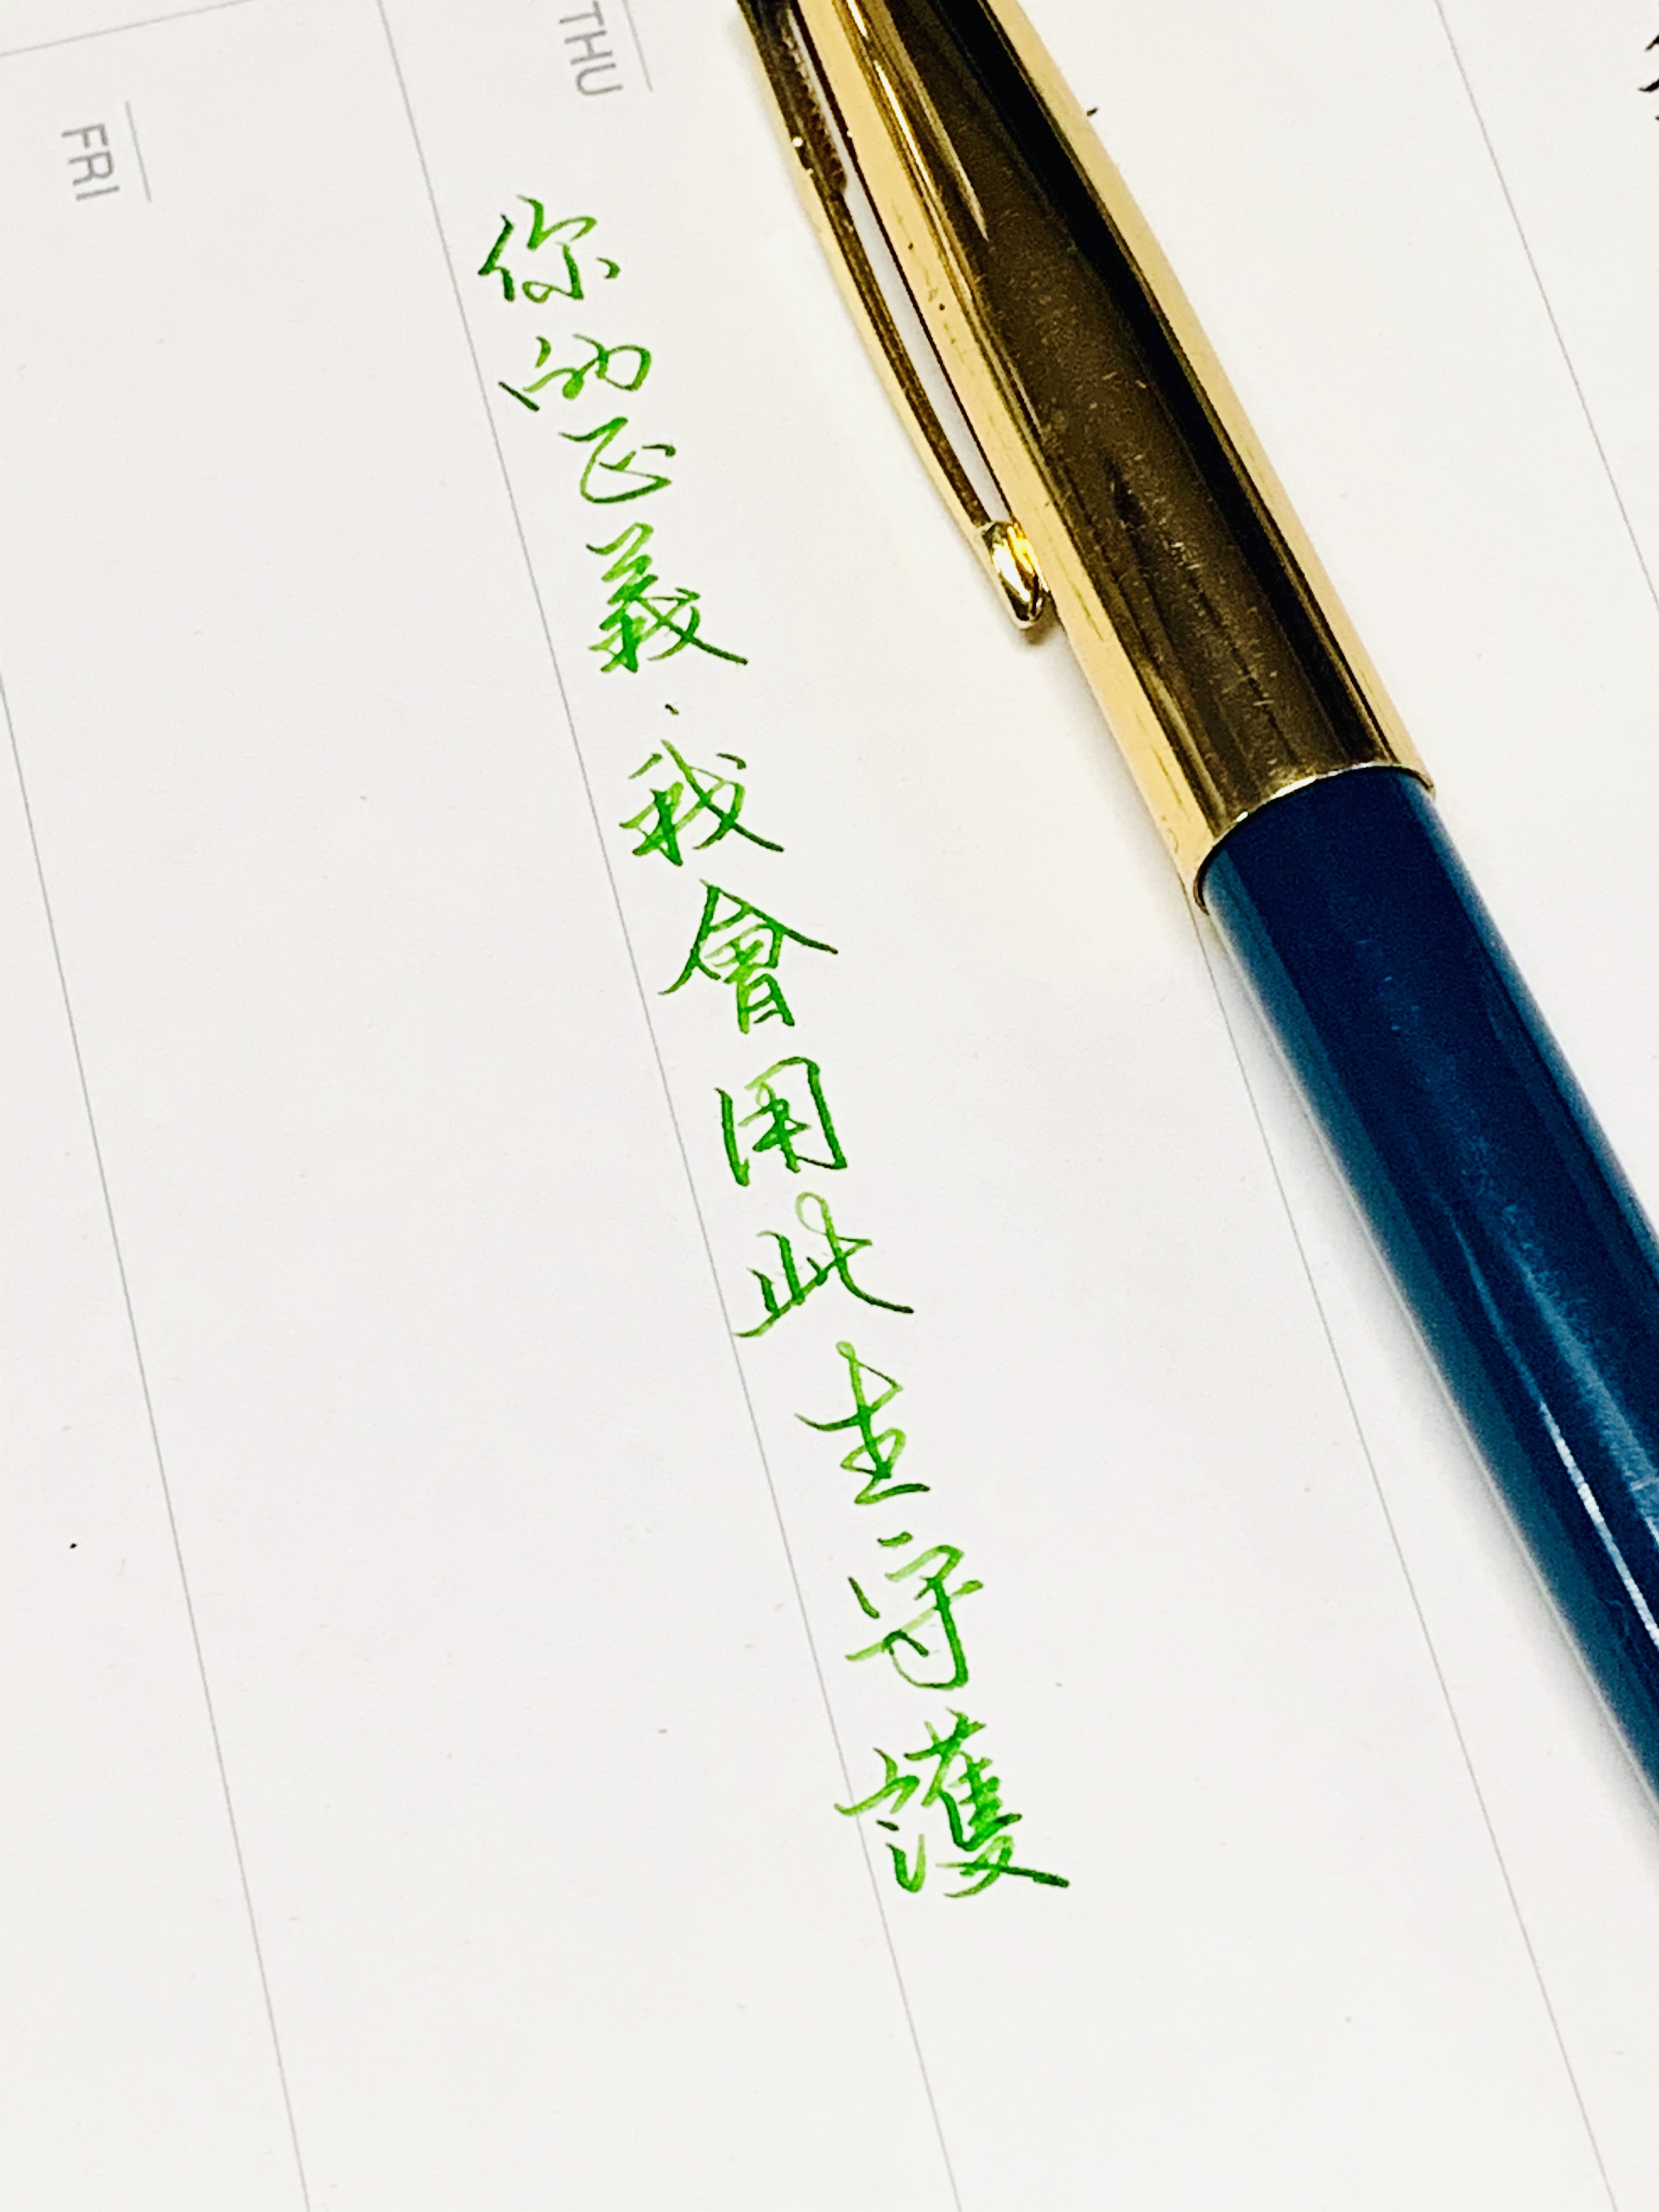 THU
FRI
你的正義，我會用此生守護